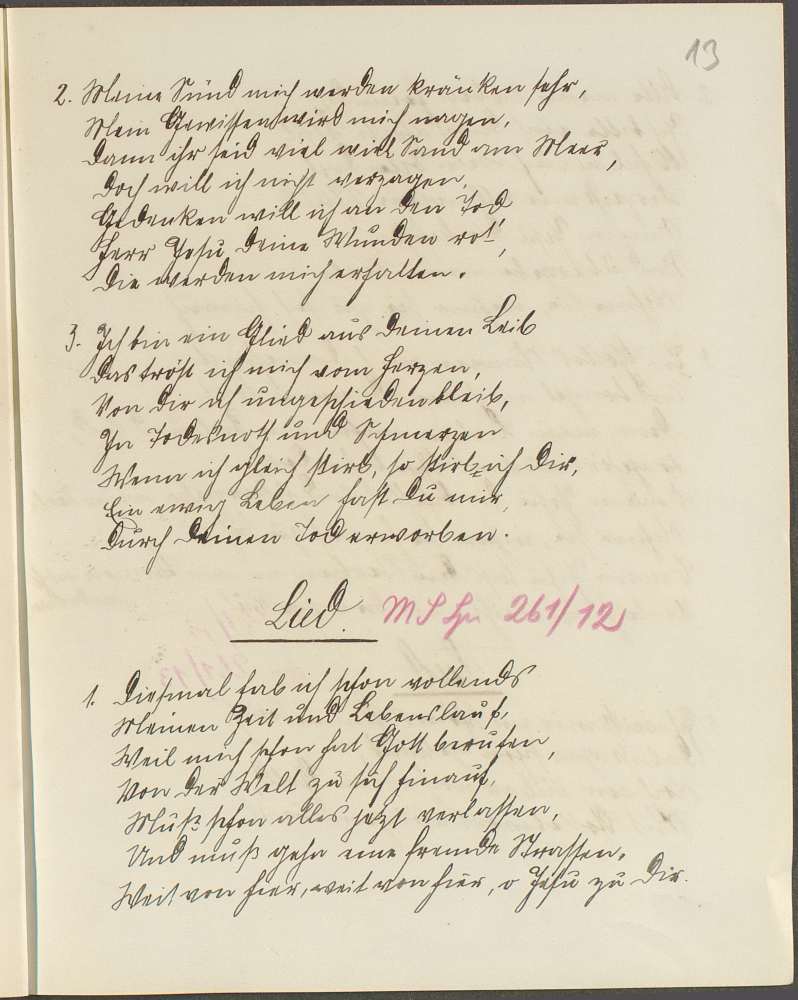 13
2. Meine Sünd mich werden kränken sehr,
Mein Gewissen wird mich nagen,
Dann ihr seid viel wiel Sand am Meer,
Doch will ich nicht verzagen,
Gedenken will ich an den Tod
Herr Jesu deine Wunden rot,
Die werden mich erhalten.
3. Ich bin ein Glied aus deinen Leib
Das tröst ich mich vom Herzen,
Von dir ich ungeschieden bleib,
In Todesnoth und Schmerzen
Wenn ich gleich stirb, so stirb ich dir,
Ein ewig Leben hast du mir,
Durch deinen Tod erworben.
Lied. MS Hu 261/12
1. Diesmal hab ich schon vollends
Meinen Zeit und Lebenslauf,
Weil mich schon hat Gott berufen,
Von der Welt zu sich hinauf,
Muß schon alles jezt verlassen,
Und muß gehn eine fremde Strassen,
Weit von hier, weit von hier, o Jesu zu dir.